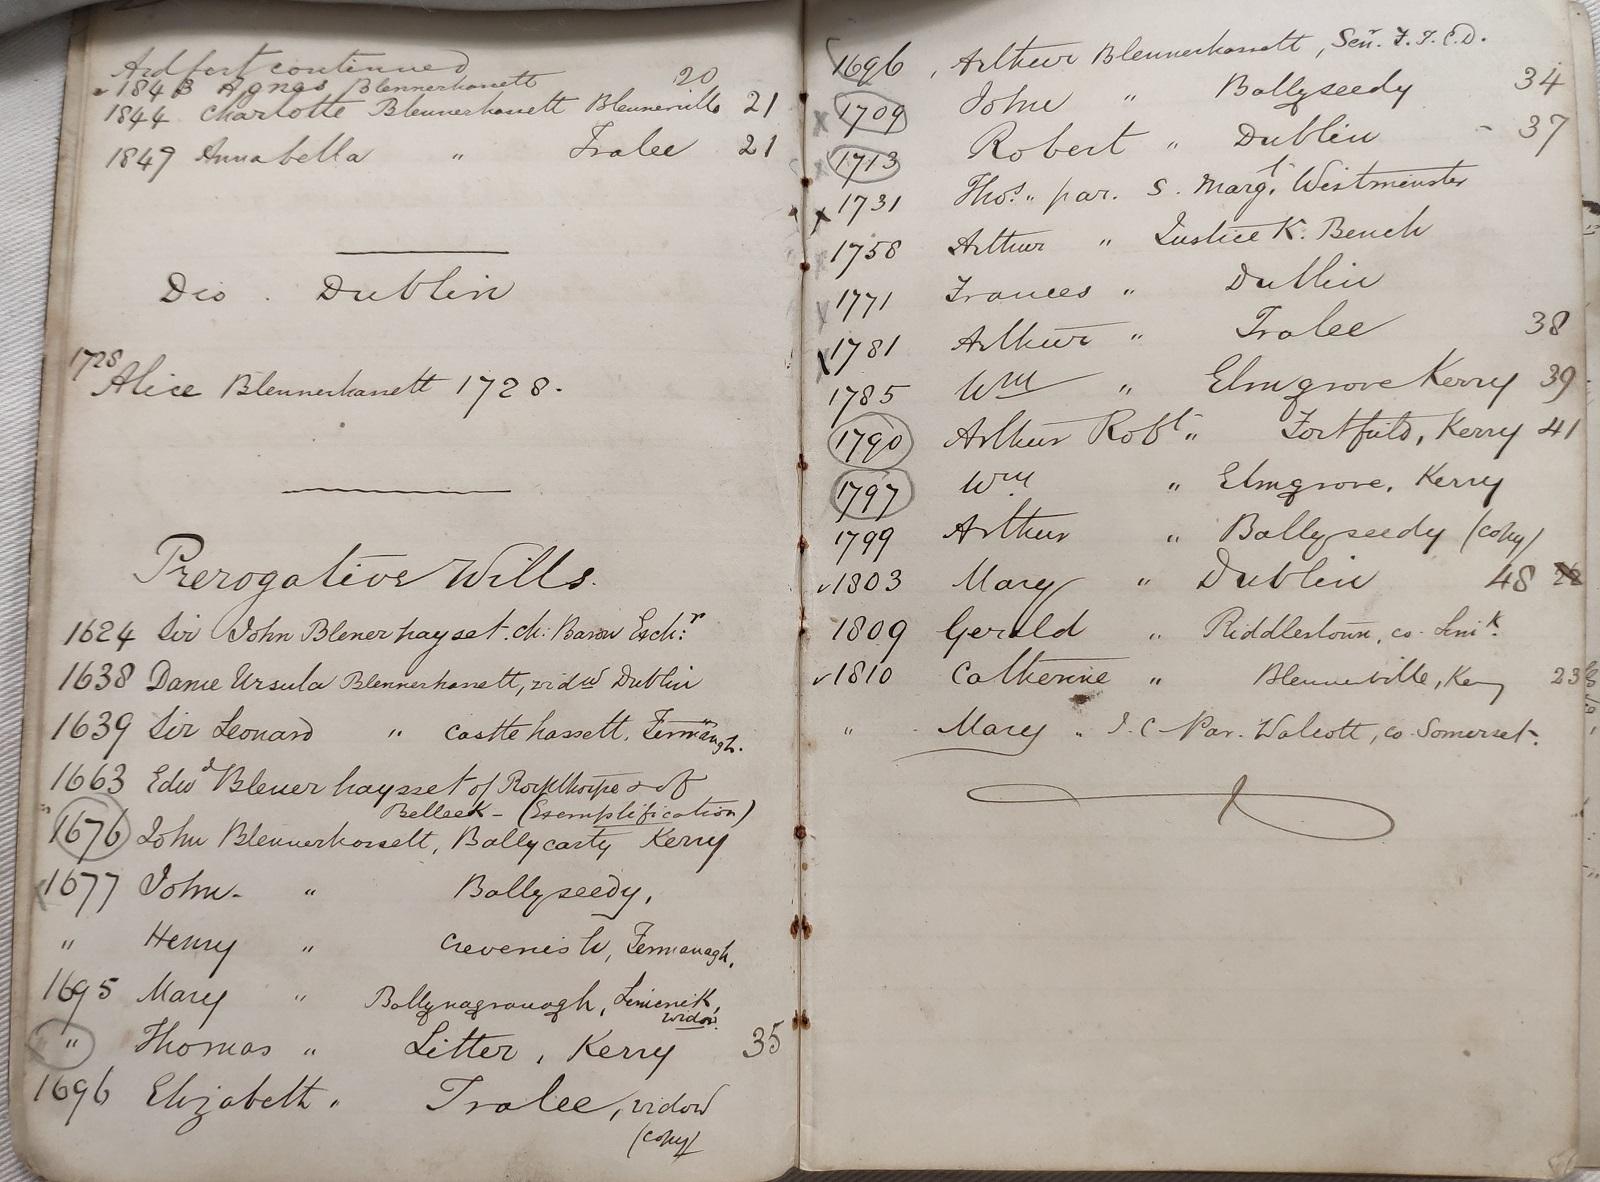 Ardfert continued
1843 Agnes Blennerhassett 20
1844 Charlotte Blennerhassett Blennerville 21
1847 Annabella " Tralee 21
Dio. Dublin
1728
Alice Blennerhassett 1728.
Prerogative Wills.
1624 Sir John Blenerhayset. ch: Baron Exch:r
1638 Dame Ursula Blennerhassett, widw Dublin
1639 Sir Leonard " Castle hassett, Fermangh.
1663 Edwd Blenerhaysset of Rockthorpe & of
Belleek - (Exemplification)
1676 John Blennerhassett, Ballycarty Kerry
1677 John - " Ballyseedy,
" Henry " Crevenish, Fermanagh,
1695 Mary " Ballynagranagh, Limerick,
widow.
" Thomas " Litter, Kerry 35
1696 Elizabeth " Tralee, widow
(copy)
1696, Arthur Blennerhassett, Senr. F.T.C.D.
1709 John " Ballyseedy 34
1713 Robert " Dublin - 37
1731 Thos. " par. S. Margt, Westminster
1758 Arthur " Justice K. Bench
1771 Frances " Dublin
1781 Arthur " Tralee 38
1785 Wm " Elmgrove Kerry 39
1790 Arthur Robt " Fortfield, Kerry 41
1797 Wm " Elmgrove, Kerry
1799 Arthur " Ballyseedy (copy)
1803 Mary " Dublin 48
1809 Gerald " Riddlestown, co. Limk.
1810 Catherine " Blennerville, Kerry 23
" Mary " I. C Par. Walcott, co. Somerset.